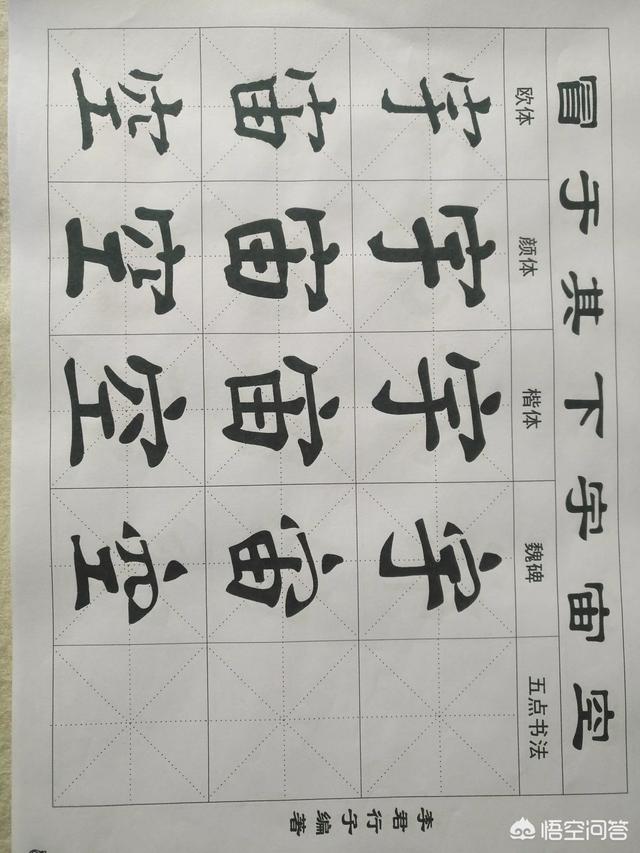 冒于其下宇宙空
欧体 颜体 楷体 魏碑 五点书法
宇 宇 宇 宇
宙 宙 宙 宙
空 空 空 空
李君行于编著
悟空问答